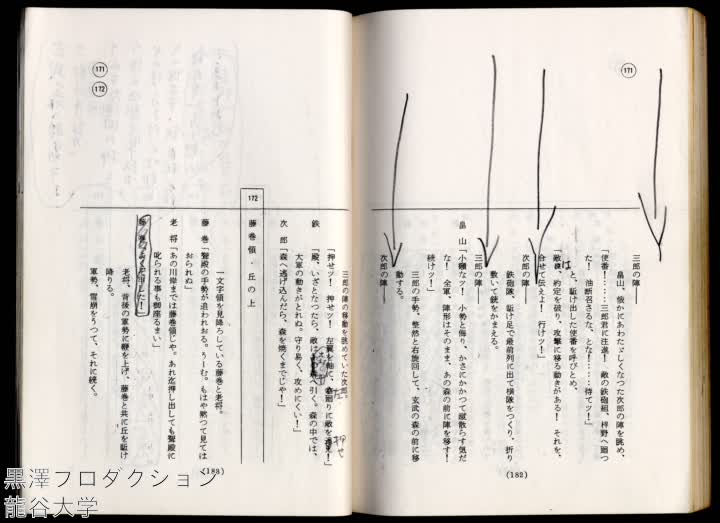 171
三郎の陣──
畠山、俄かにあわたゞしくなつた次郎の陣を眺め、
「使番！……三郎君に注進！ 敵の鉄砲組、梓野へ廻つ
た！ 油断召さるな、とな！……待てツ！」
と、駈け出した使番を呼びとめ、
「敵は、約定を破り、攻撃に移る動きがある！ それを、
合せて伝えよ！ 行けツ！」
次郎の陣──
鉄砲隊、駈け足で最前列に出て横隊をつくり、折り
敷いて銃をかまえる。
三郎の陣──
畠山「小癪なツ！ 小勢と侮り、かさにかかつて蹴散らす気だ
な！ 全軍、陣形はそのまま、あの森の前に陣を移す！
続けツ！」
三郎の手勢、整然と右旋回して、玄武の森の前に移
動する。
次郎の陣──
(182)
171
172
三郎の陣の移動を眺めていた次郎。
「押せツ！ 押せツ！ 左翼を軸に、
押せ
鉄「殿、いざとなつたら、敵は
引く。森の中では、
大軍の動きがとれぬ。守り易く、攻めにくい！」
次郎「森へ逃げ込んだら、森を焼くまでじや！」
172 藤巻領・丘の上
一文字領を見降ろしている藤巻と老将。
藤巻「聟殿の手勢が追われおる。うーむ。もはや黙つて見ては
おられぬ」
老将「あの川岸までは藤巻領じや。あれ迄押し出しても聟殿に
叱られる事も御座るまい」
藤巻「よくぞ申した！」
老将、背後の軍勢に鞭を上げ、藤巻と共に丘を駈け
降りる。
軍勢、雪崩をうつて、それに続く。
(183)
黒澤プロダクション
龍谷大学